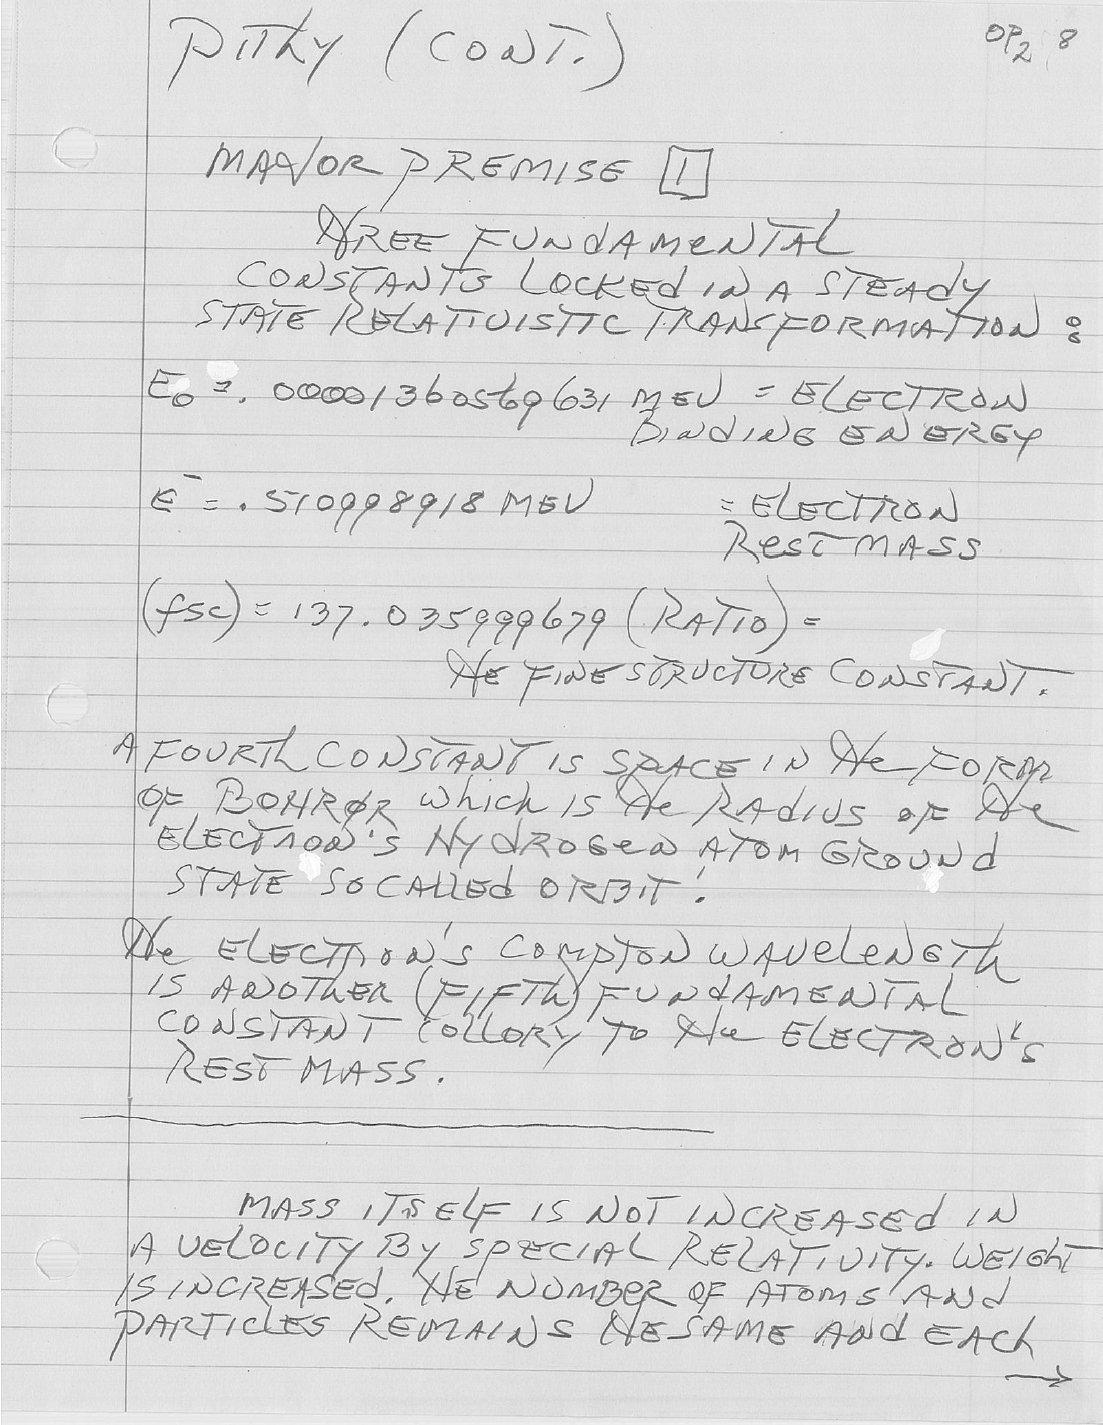 PITHY (CONT.)
OP2 8
MAJOR PREMISE 1
THREE FUNDAMENTAL
CONSTANTS LOCKED IN A STEADY
STATE RELATIVISTIC TRANSFORMATION :
E0 = .00001360569631 MEV = ELECTRON
BINDING ENERGY
e- = .510998918 MEV = ELECTRON
REST MASS
(fsc) = 137.035999679 (RATIO) =
THE FINE STRUCTURE CONSTANT.
A FOURTH CONSTANT IS SPACE IN THE FORM
OF BOHR which IS THE RADIUS OF THE
ELECTRON'S HYDROGEN ATOM GROUND
STATE 'SO CALLED ORBIT'.
THE ELECTRON'S COMPTON WAVELENGTH
IS ANOTHER (FIFTH) FUNDAMENTAL
CONSTANT COLLORY TO THE ELECTRON'S
REST MASS.
MASS ITSELF IS NOT INCREASED IN
A VELOCITY BY SPECIAL RELATIVITY. WEIGHT
IS INCREASED. THE NUMBER OF ATOMS AND
PARTICLES REMAINS THE SAME AND EACH
→